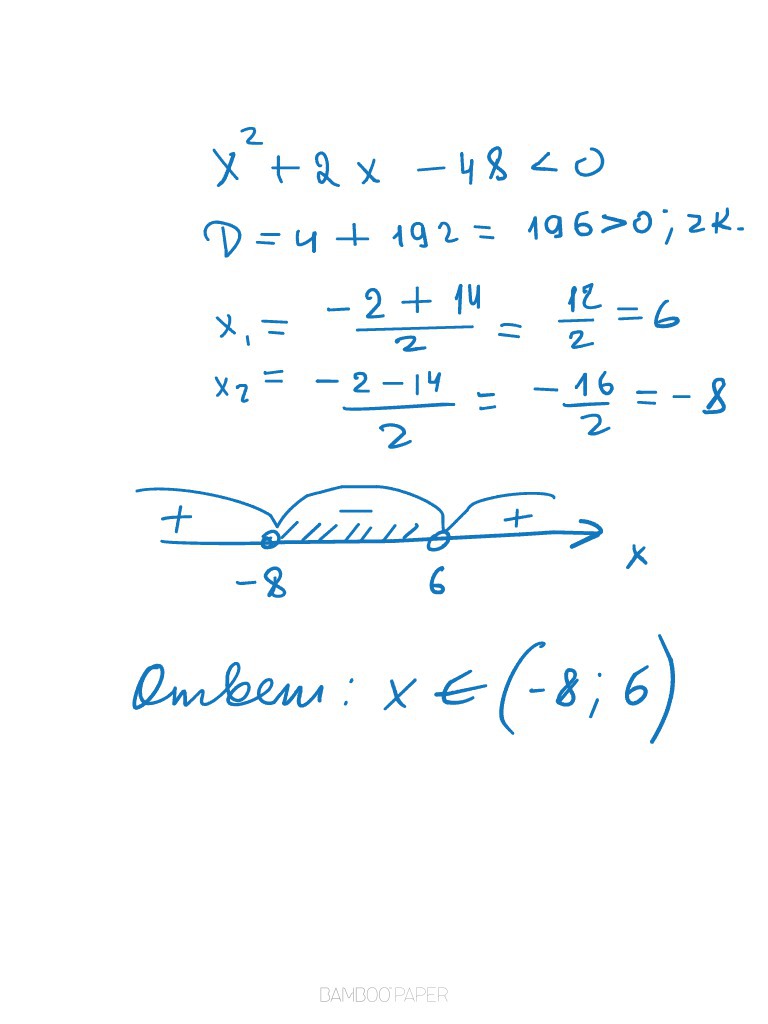 x² + 2x - 48 < 0
D = 4 + 192 = 196 > 0; 2к.
x₁ = (-2 + 14)/2 = 12/2 = 6
x₂ = (-2 - 14)/2 = -16/2 = -8
+ − +
-8 6 x
Ответ: x ∈ (-8; 6)
BAMBOO PAPER